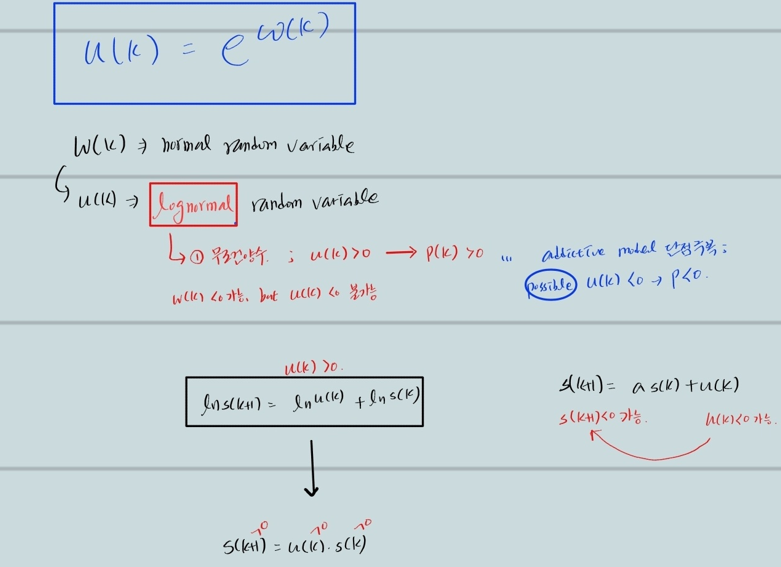 u(k) = e^{w(k)}
W(k) ⇒ normal random variable
u(k) ⇒ lognormal random variable
① 무조건양수. ; u(k)>0 → p(k)>0 ... addictive model 단점극복;
w(k)<0 가능, but u(k)<0 불가능
possible u(k)<0 → p<0.
u(k)>0.
ln s(k+1) = ln u(k) + ln s(k)
s(k+1) = a s(k) + u(k)
s(k+1)<0 가능. u(k)<0 가능.
>0 >0 >0
s(k+1) = u(k) · s(k)